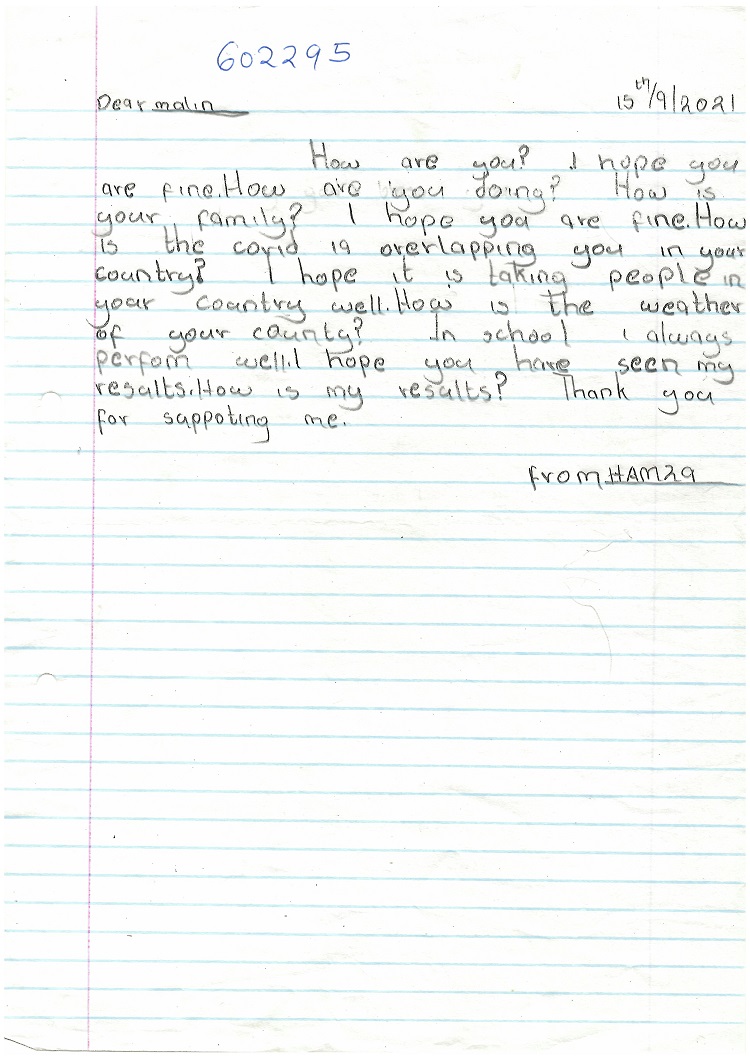 602295
Dear malin 15th/9/2021
How are you? I hope you
are fine.How are you doing? How is
your family? I hope you are fine.How
is the covid 19 overlapping you in your
country? I hope it is taking people in
your country well.How is the weather
of your county? In school i always
perfom well.I hope you have seen my
results.How is my results? Thank you
for suppoting me.
from HAMZA